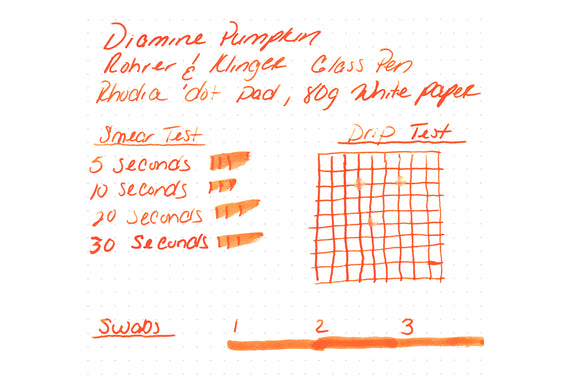 Diamine Pumpkin
Rohrer & Klinger Glass Pen
Rhodia 'dot' Pad, 80g White paper
Smear Test
5 seconds
10 seconds
20 seconds
30 seconds
Drip Test
Swabs 1 2 3